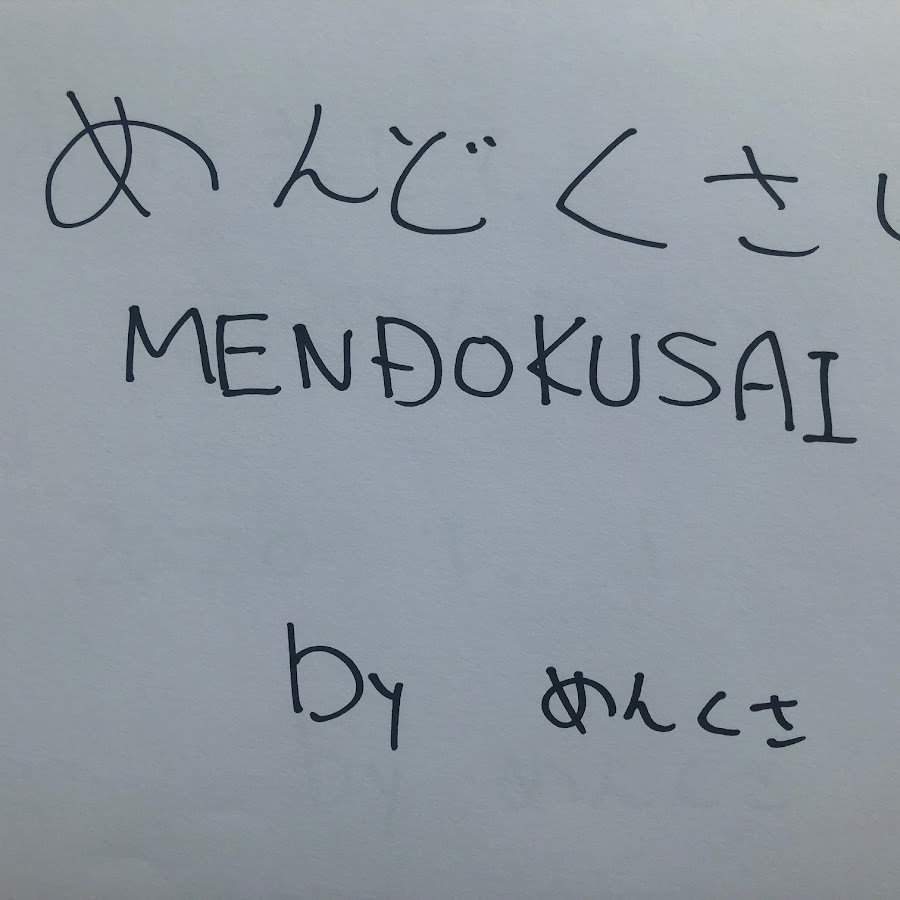 めんどくさい
MENĐOKUSAI
by めんくさ